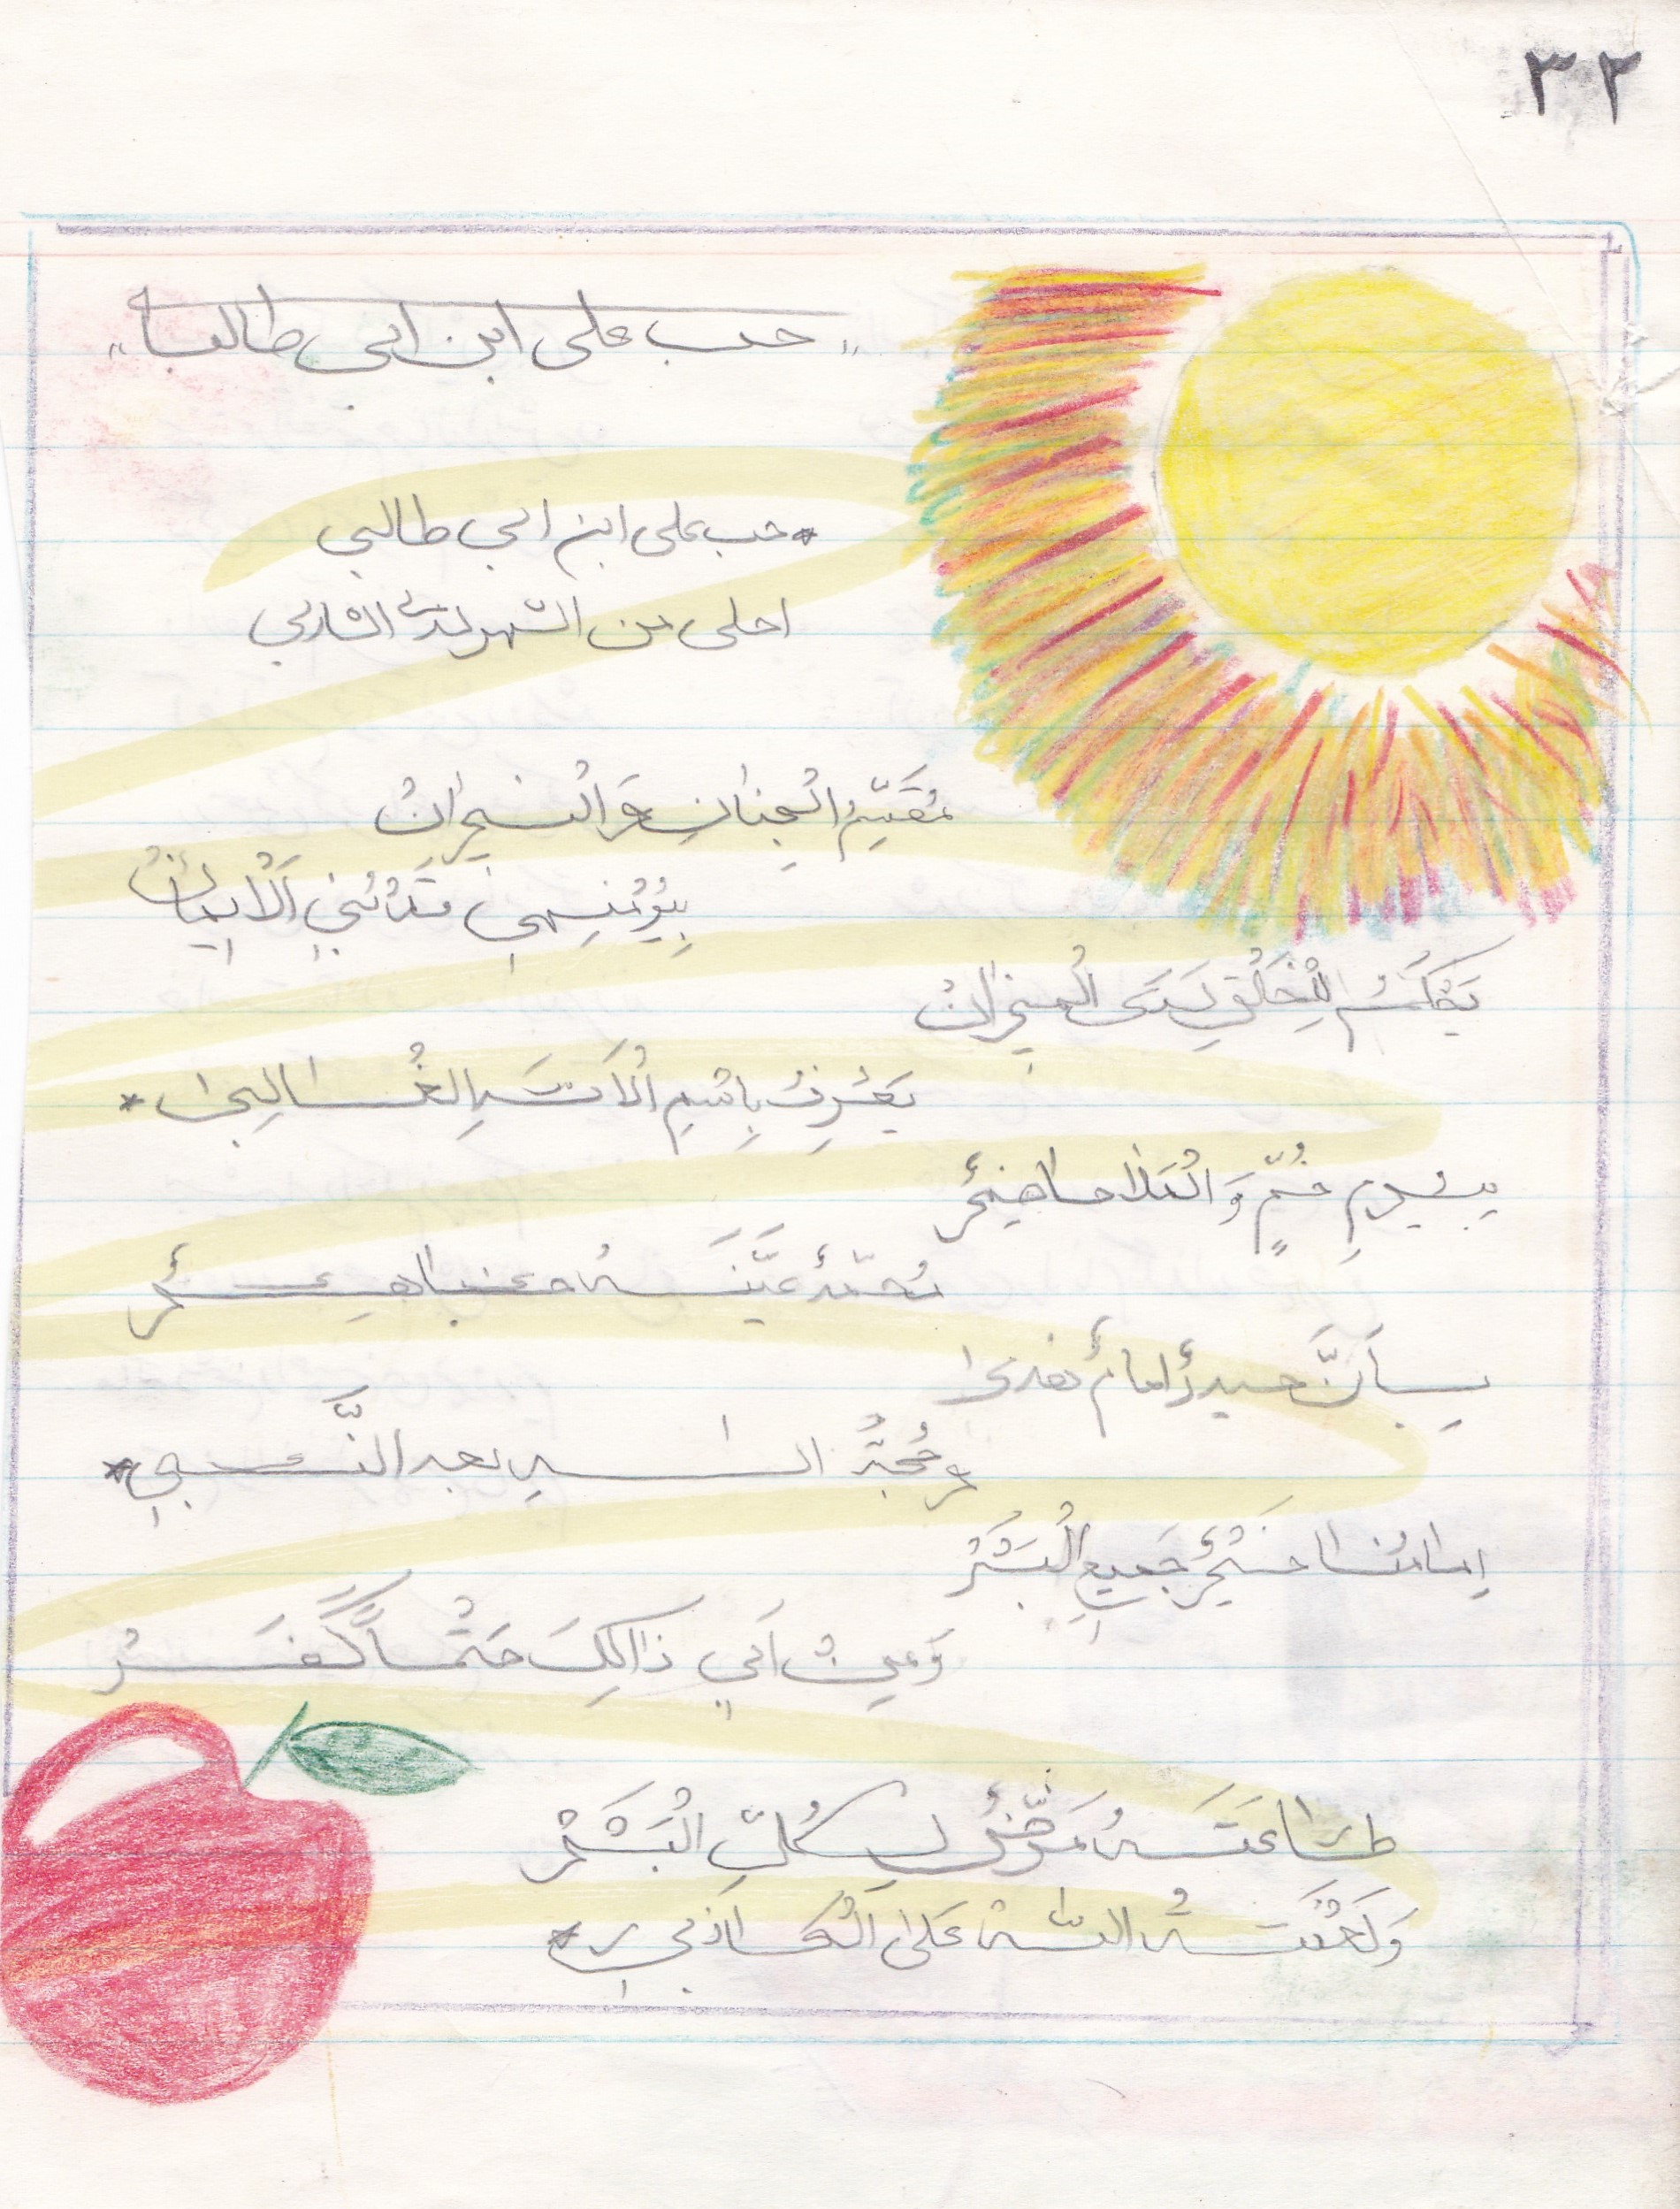 ٣٢
"حب علی ابن ابی طالب"
* حب علی ابن ابي طالبي
احلی من الشهد لدی الشاربي
مُقَسِّمُ الْجِنانِ وَ النيرانْ
الْايمانْ
لِلْخَلْقِ لَدَی الْميزانْ
يَعْرِفُ بِاسْمِ الْأَسَدِ الْغالِبي *
بِغديرِ خُمٍّ وَ الْمَلا حاضِرُ
مُحمّدُ عَيَّنَهُ
بِأَنَّ حيدرُ امامُ هُدیٰ
وَ حُجَّةُ الله بعد النَّبي *
اِمامُنا خَيْرُ جَميعِ الْبَشَرْ
وَ مَنْ اَبي ذالِكَ حَتْماً كَفَرْ
طاعَتُهُ فَرْضُ لِكُلِّ الْبَشَرْ
وَ لَعْنَتُ اللهْ عَلَی الْكاذِبي *